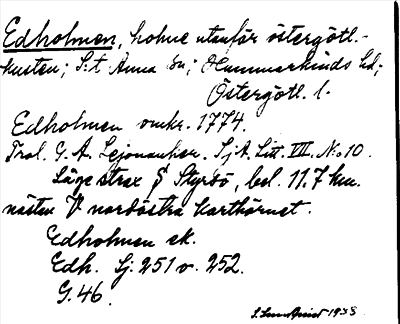 Edholmen, holme utanför östergötl.-
kusten; S:t Anna sn; Hammarkinds hd;
Östergötl. l.
Edholmen omkr. 1774.
Trol. G. A. Lejonancker. SjA. Litt. VII. No 10.
Läge strax S Styrsö, bel. 11.7 km.
nästan V nordöstra karthörnet.
Edholmen ek.
Edh. Sj. 251 o. 252.
G. 46.
S. Lundqvist 1938